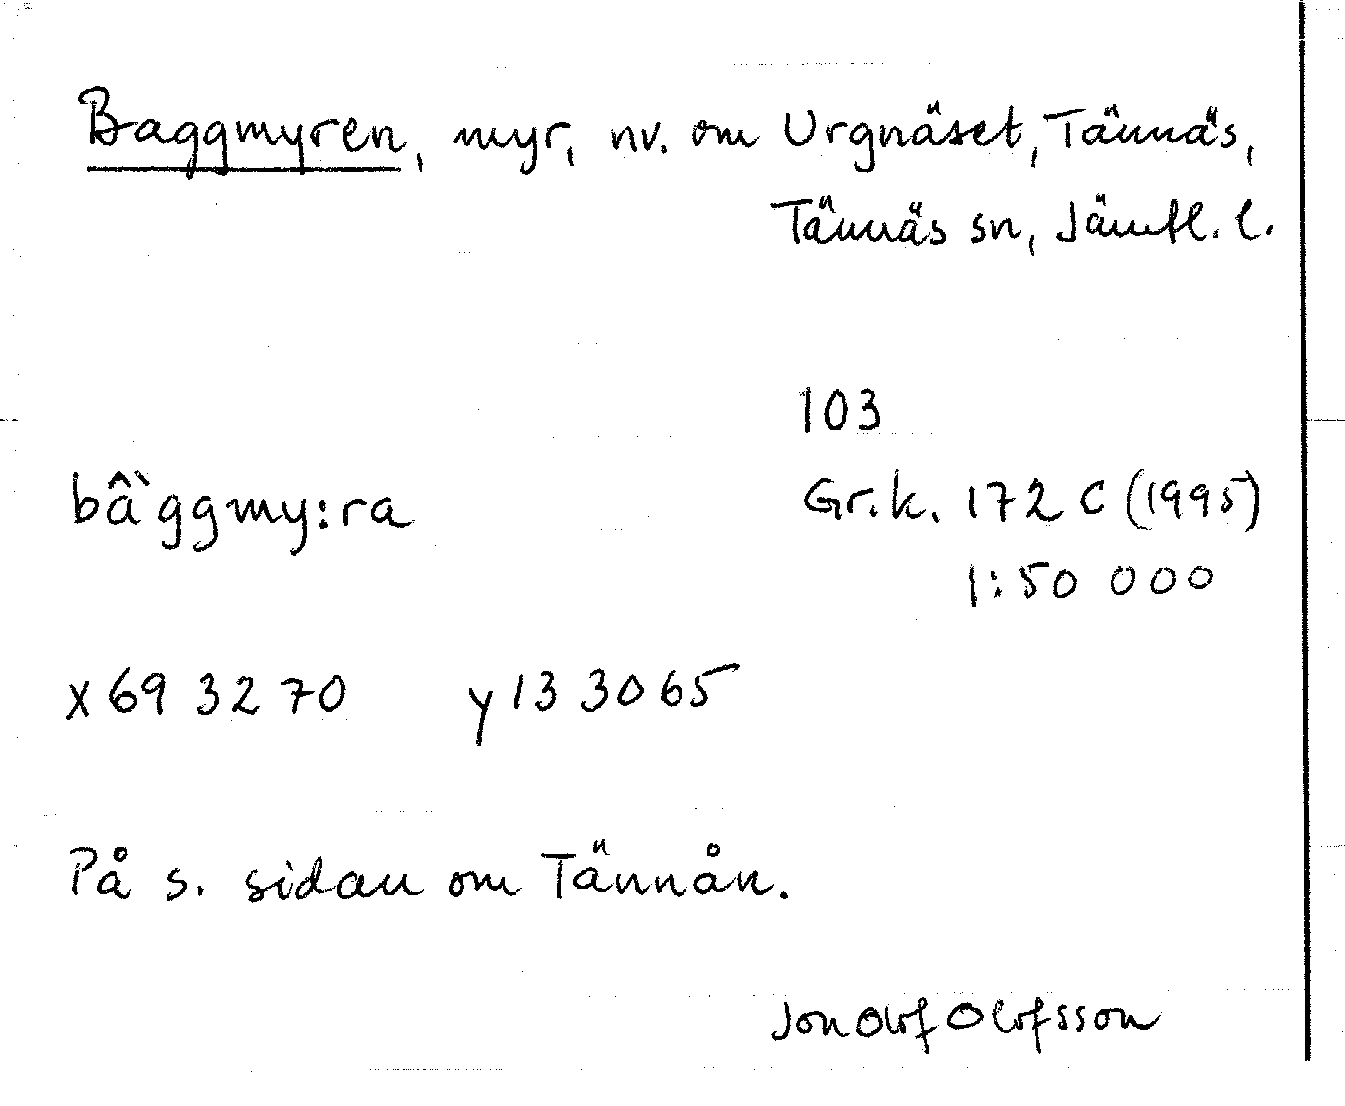 Baggmyren, myr, nv. om Urgnäset, Tännäs,
Tännäs sn, Jämtl. l.
103
bâ`ggmy:ra Gr.k. 172 C (1995)
1:50 000
x 69 32 70 y 13 30 65
På s. sidan om Tännån.
Jon Olof Olofsson